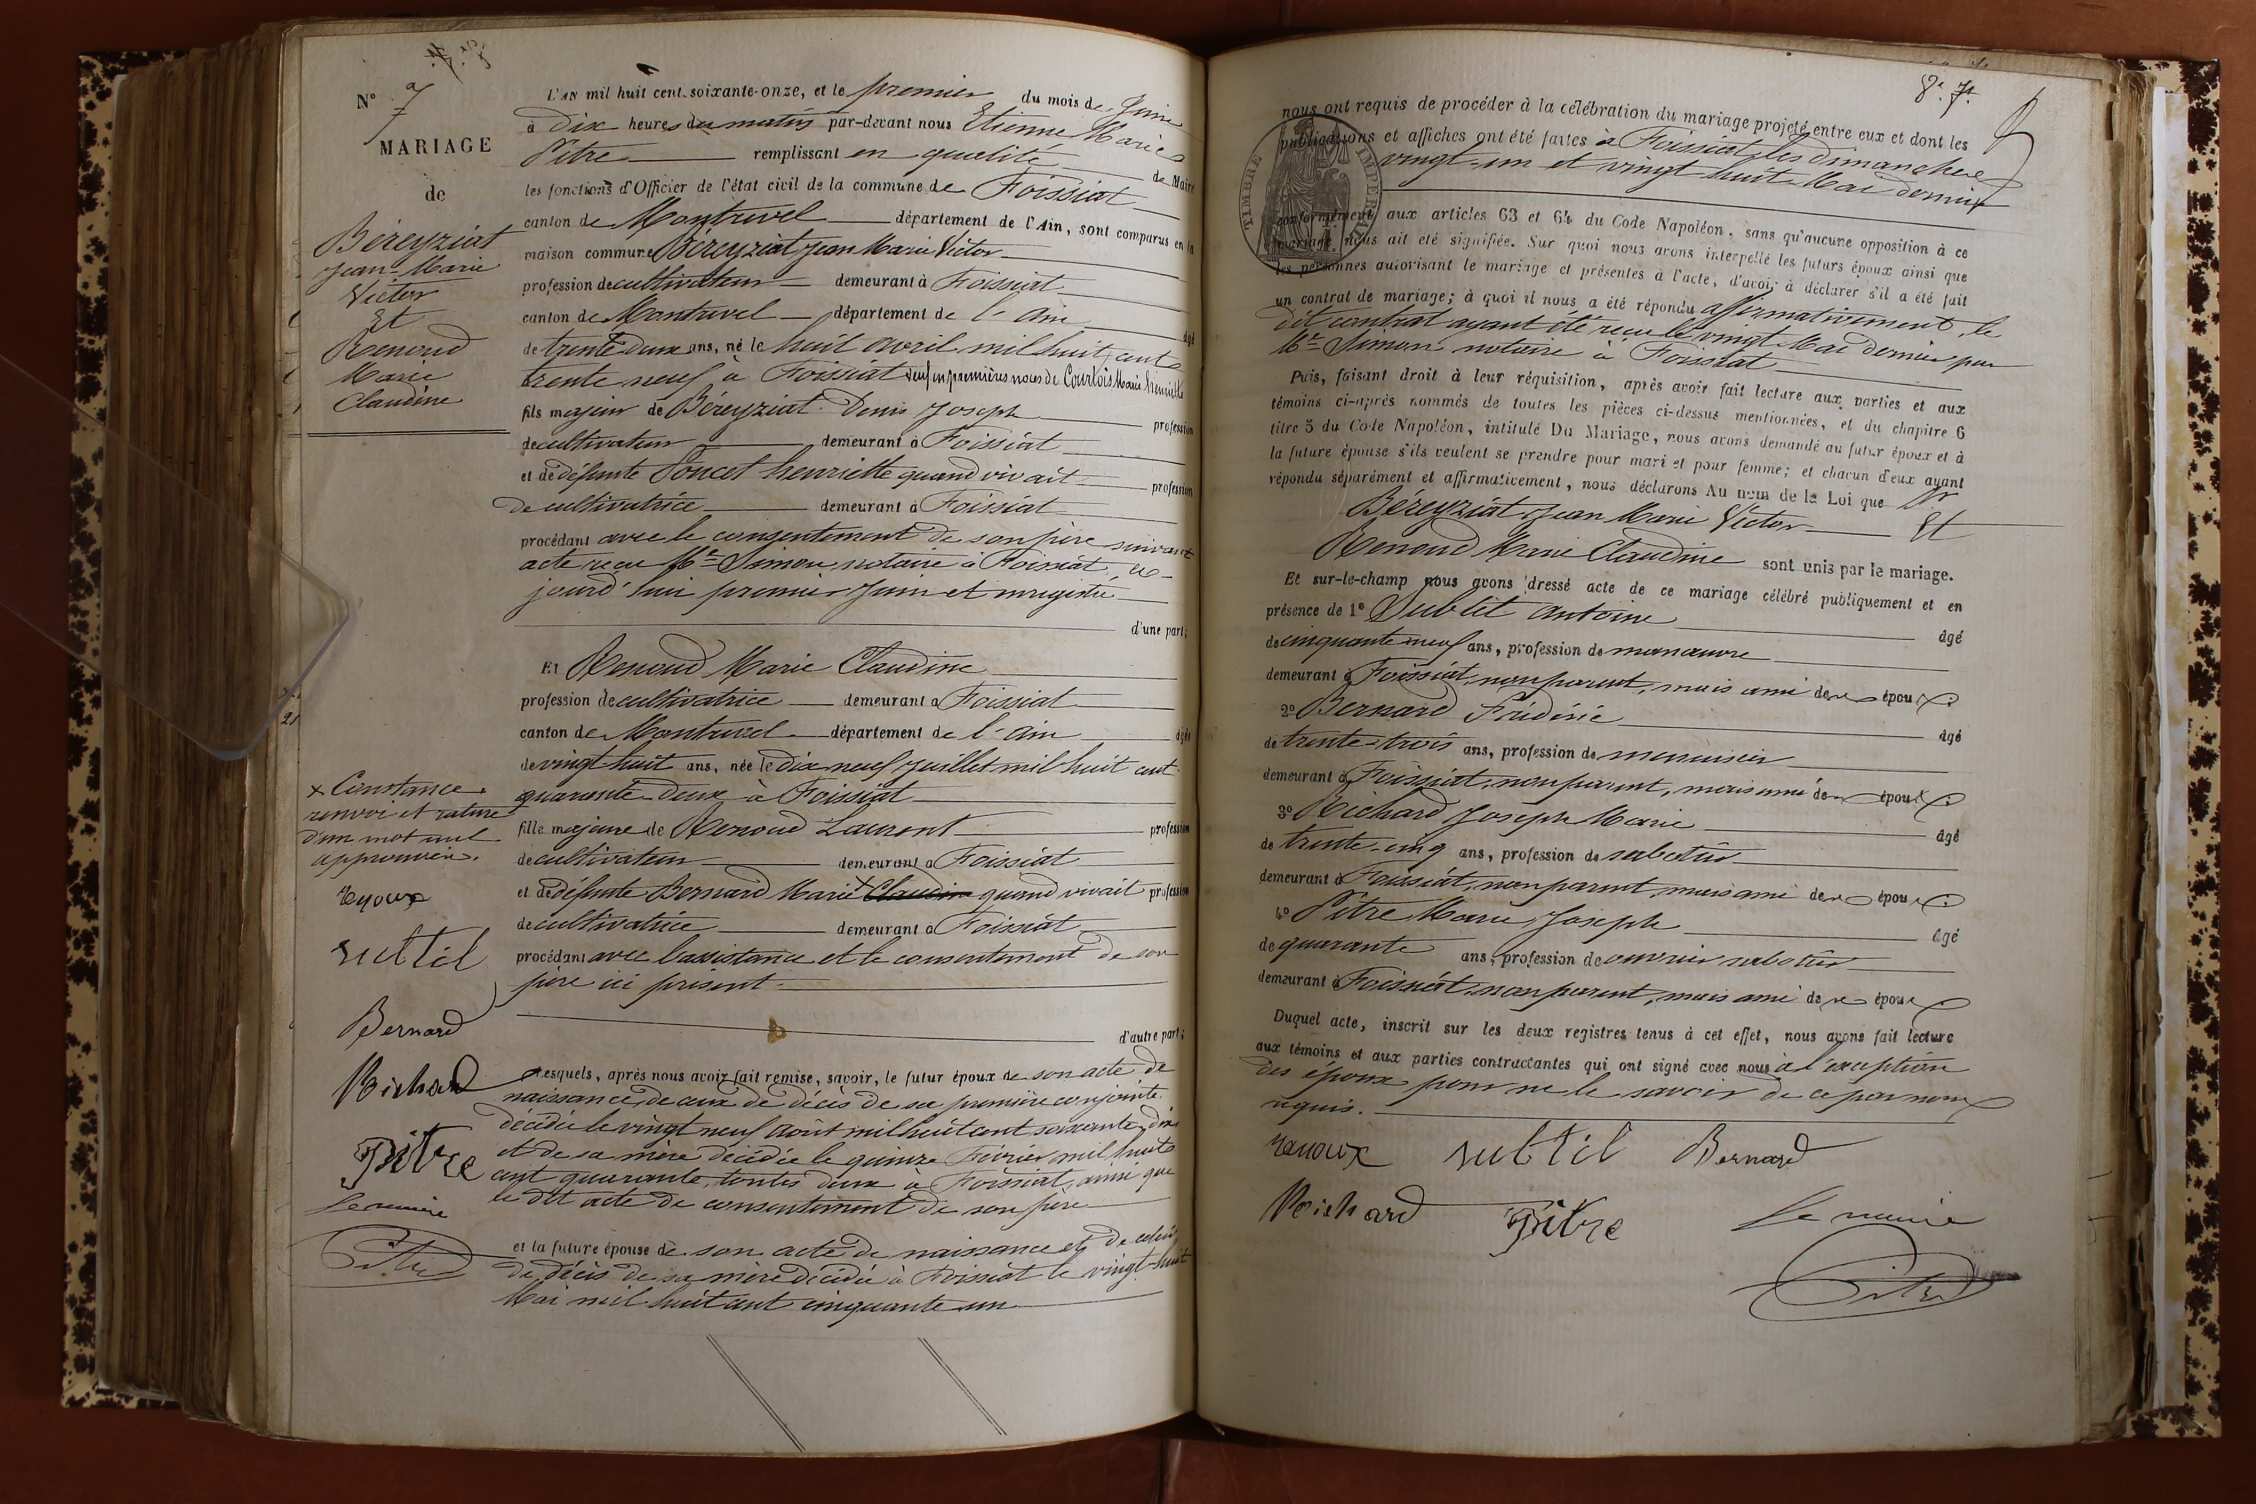 N° 7
MARIAGE
de
Béreyziat
Jean-Marie
Victor
Et
Renoud
Marie
Claudine
L'AN mil huit cent soixante-onze, et le premier du mois de Juin
à dix heures du matin par-devant nous Etienne Marie
Pitre remplissant en qualité de Maire
les fonctions d'Officier de l'état civil de la commune de Foissiat
canton de Montrevel département de l'Ain, sont comparus en la
maison commune Béreyziat Jean Marie Victor
profession de cultivateur demeurant à Foissiat
canton de Montrevel département de l'Ain âgé
de trente deux ans, né le huit avril mil huit cent
trente neuf à Foissiat veuf en premières noces de Courtois Marie henriette
fils majeur de Béreyziat Denis Joseph profession
de cultivateur demeurant à Foissiat
et de défunte Poncet henriette quand vivait profession
de cultivatrice demeurant à Foissiat
procédant avec le consentement de son père suivant
acte reçu Me Simon notaire à Foissiat, ce-
jourd'hui premier Juin et enregistré
d'une part;
Et Renoud Marie Claudine
profession de cultivatrice demeurant à Foissiat
canton de Montrevel département de l'Ain âgée
de vingt huit ans, née le dix neuf Juillet mil huit cent
quarante deux à Foissiat
fille majeure de Renoud Laurent profession
de cultivateur demeurant à Foissiat
et de défunte Bernard Marie x Claudine quand vivait profession
de cultivatrice demeurant à Foissiat
procédant avec l'assistance et le consentement de son
père ici présent
d'autre part;
Lesquels, après nous avoir fait remise, savoir, le futur époux de son acte de
naissance, de ceux de décès de sa première conjointe
décédée le vingt neuf août mil huit cent soixante dix
et de sa mère décédée le quinze Février mil huit
cent quarante, toutes deux à Foissiat, ainsi que
le dit acte de consentement de son père
et la future épouse de son acte de naissance et de celui
de décès de sa mère décédée à Foissiat le vingt-huit
Mai mil huit cent cinquante un
x Constance
renvoi et rature
d'un mot nul
approuvés.
subtil
Bernard
Richard
Pitre
Le maire
Pitre
8e 7e
nous ont requis de procéder à la célébration du mariage projeté entre eux et dont les
publications et affiches ont été faites à Foissiat les dimanches
vingt-un et vingt-huit Mai dernier
TIMBRE IMPERIAL
conformément aux articles 63 et 64 du Code Napoléon, sans qu'aucune opposition à ce
mariage nous ait été signifiée. Sur quoi nous avons interpellé les futurs époux ainsi que
les personnes autorisant le mariage et présentes à l'acte, d'avoir à déclarer s'il a été fait
un contrat de mariage; à quoi il nous a été répondu affirmativement, le
dit contrat ayant été reçu le vingt Mai dernier par
Me Simon notaire à Foissiat
Puis, faisant droit à leur réquisition, après avoir fait lecture aux parties et aux
témoins ci-après nommés de toutes les pièces ci-dessus mentionnées, et du chapitre 6
titre 5 du Code Napoléon, intitulé Du Mariage, nous avons demandé au futur époux et à
la future épouse s'ils veulent se prendre pour mari et pour femme; et chacun d'eux ayant
répondu séparément et affirmativement, nous déclarons Au nom de la Loi que
Béreyziat Jean Marie Victor Et
Renoud Marie Claudine sont unis par le mariage.
Et sur-le-champ nous avons dressé acte de ce mariage célébré publiquement et en
présence de 1° Subtil antoine âgé
de cinquante neuf ans, profession de manœuvre
demeurant à Foissiat, non parent, mais ami des époux.
2° Bernard Frédéric âgé
de trente-trois ans, profession de menuisier
demeurant à Foissiat, non parent, mais ami des époux.
3° Richard Joseph Marie âgé
de trente-cinq ans, profession de sabotier
demeurant à Foissiat, non parent, mais ami des époux.
4° Pitre Marie Joseph âgé
de quarante ans, profession de ouvrier sabotier
demeurant à Foissiat, non parent, mais ami des époux
Duquel acte, inscrit sur les deux registres tenus à cet effet, nous avons fait lecture
aux témoins et aux parties contractantes qui ont signé avec nous à l'exception
des époux pour ne le savoir de ce par nous
requis.
subtil Bernard
Richard Pitre Le maire
Pitre